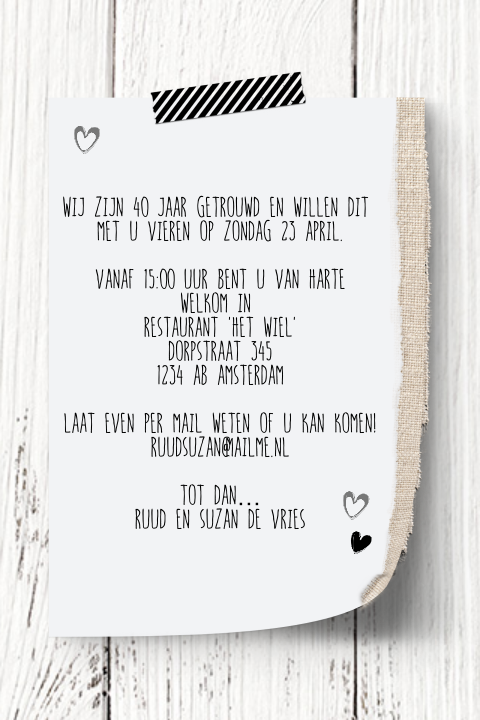 WIJ ZIJN 40 JAAR GETROUWD EN WILLEN DIT
MET U VIEREN OP ZONDAG 23 APRIL.
VANAF 15:00 UUR BENT U VAN HARTE
WELKOM IN
RESTAURANT 'HET WIEL'
DORPSTRAAT 345
1234 AB AMSTERDAM
LAAT EVEN PER MAIL WETEN OF U KAN KOMEN!
RUUDSUZAN@MAILME.NL
TOT DAN...
RUUD EN SUZAN DE VRIES